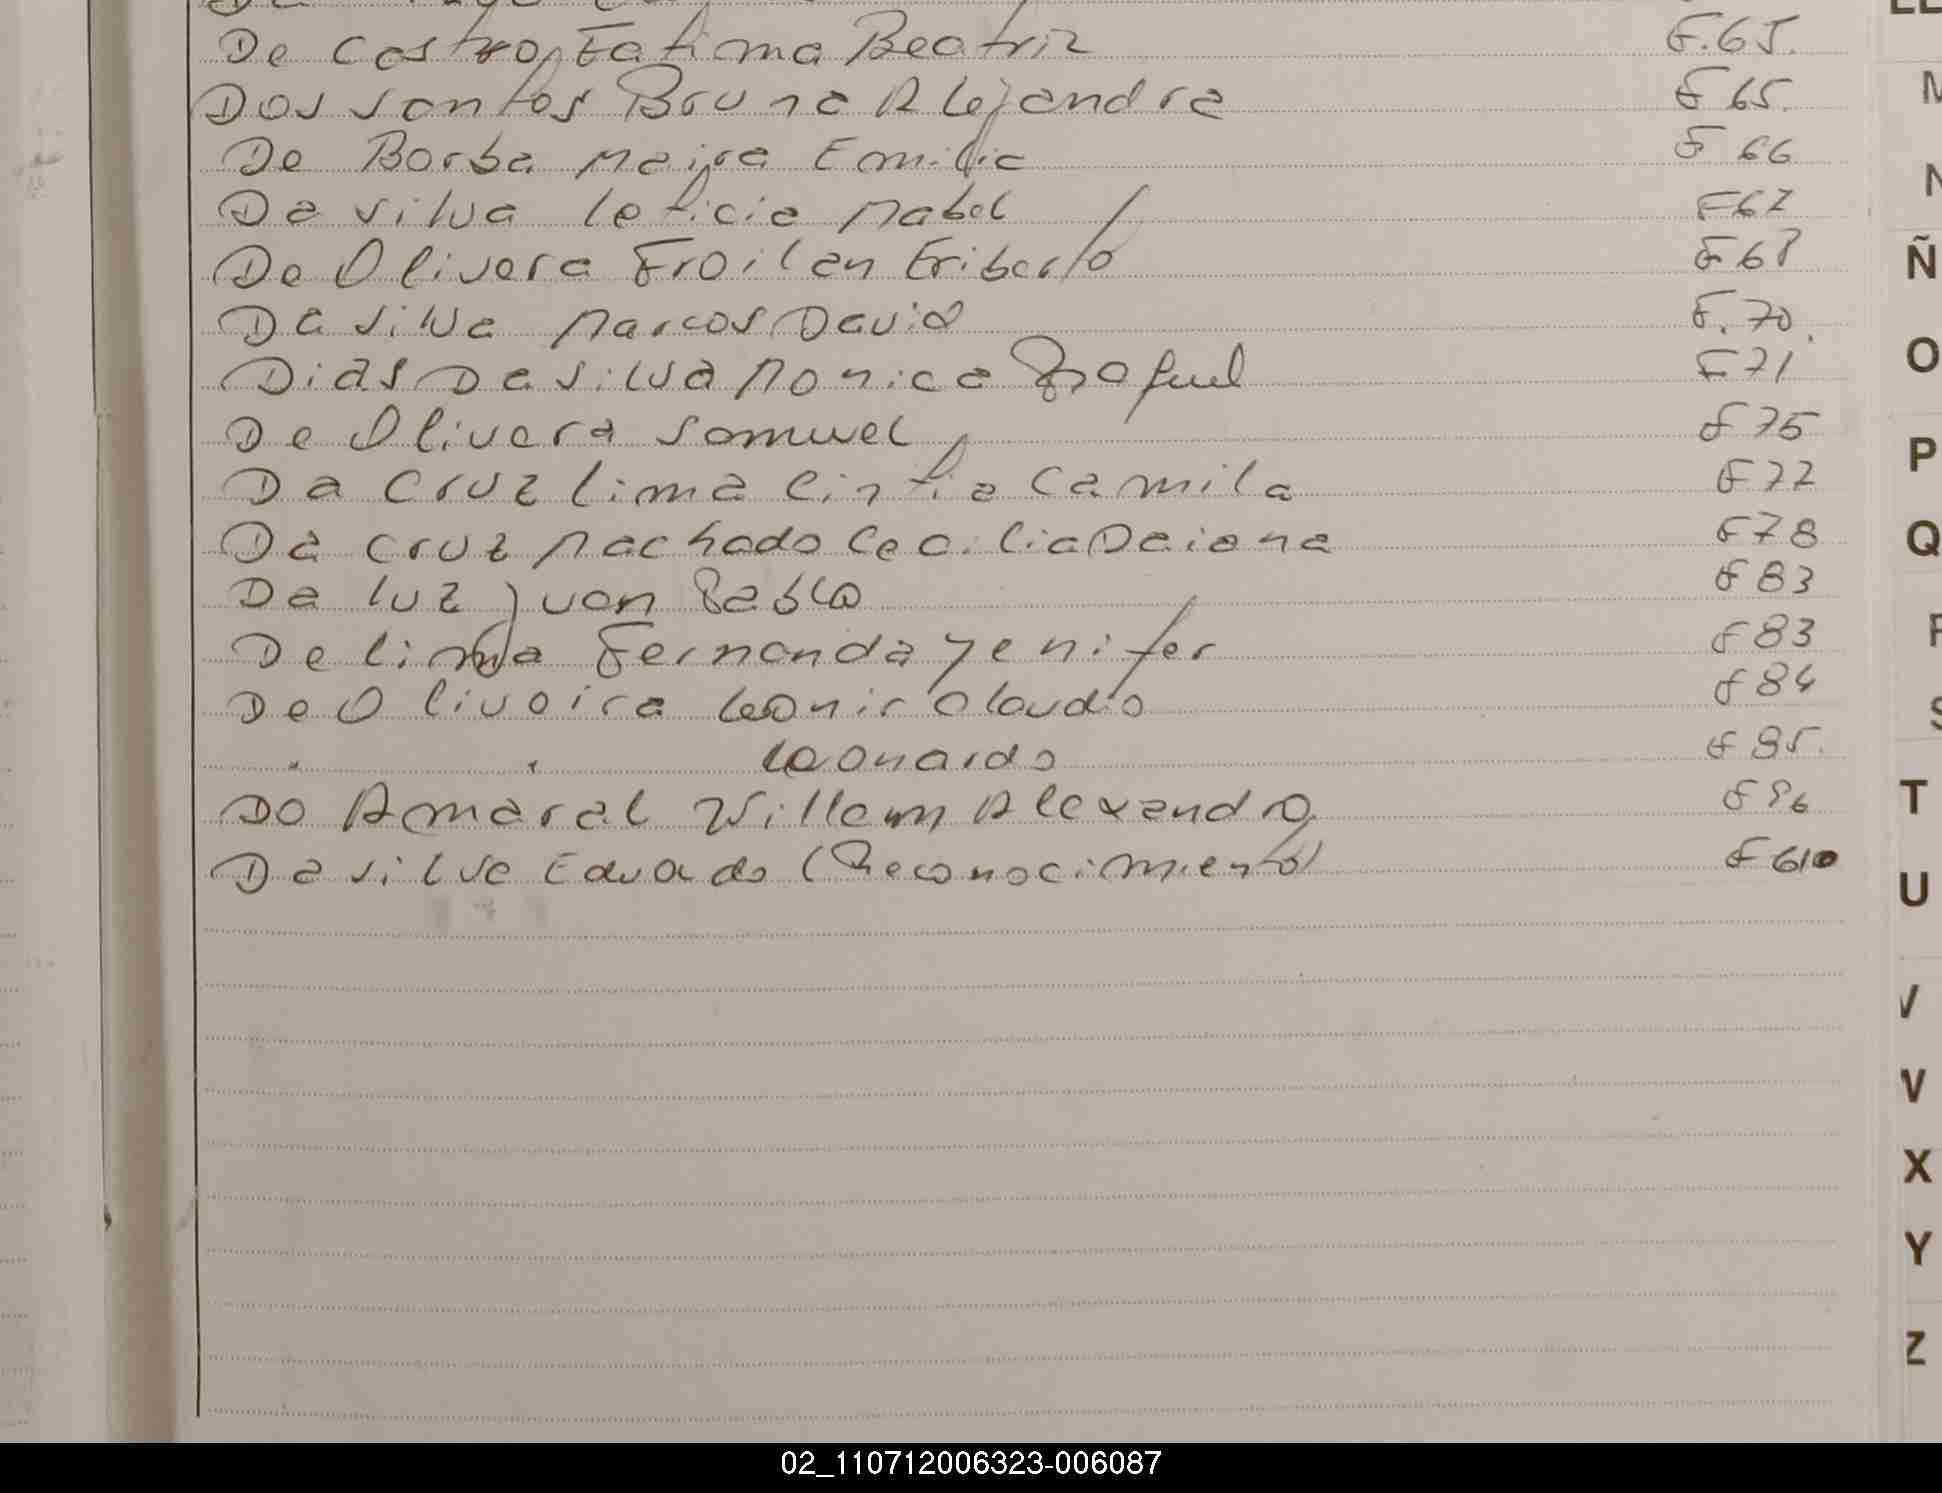 De Castro, Fatima Beatriz F.65.
Dos santos Bruna Alejandra F 65.
De Borba Maira Emilia F 66
Da silva leticia Mabel F67
De Olivera Froilan Eriberto F68
Da silva Marcos David F.70.
Dias Da silva Monica Raquel F71
De Olivera Samuel F75
Da Cruz lima Cintia Camila F77
Da Cruz Machado Cecilia Daiana F78
Da luz juan Pablo F83
De lima Fernanda Yenifer F83
De Oliveira Leonir Claudio F84
" " Leonardo F85.
Do Amaral Willam Alexandro F86
Da silva Eduardo (Reconocimiento) F610
M
N
Ñ
O
P
Q
R
S
T
U
V
W
X
Y
Z
02_110712006323-006087